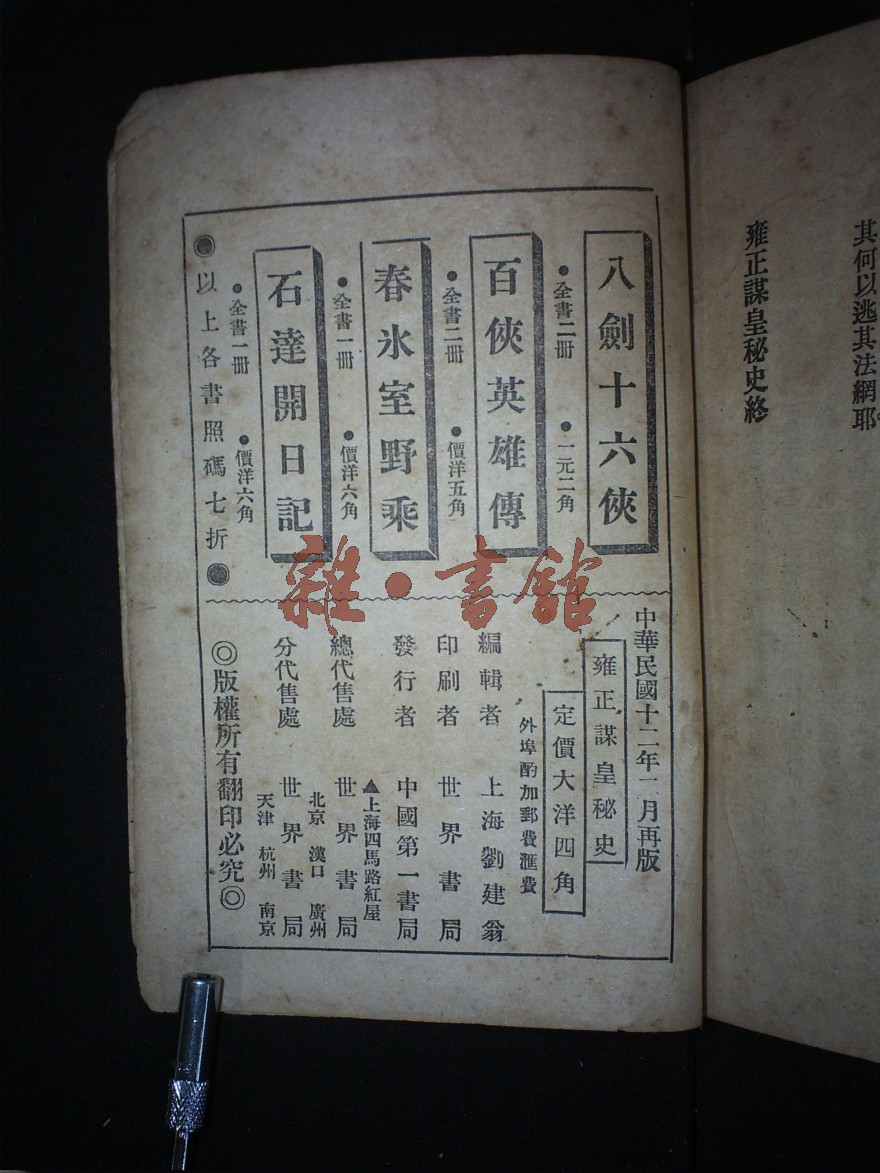 其何以逃其法網耶。
雍正謀皇秘史終
八劍十六俠
●全書二冊 ●一元二角
百俠英雄傳
●全書二冊 ●價洋五角
春氷室野乘
●全書一冊 ●價洋六角
石達開日記
●全書一冊 ●價洋六角
●以上各書照碼七折●
中華民國十二年二月再版
雍正謀皇秘史
定價大洋四角
外埠酌加郵費匯費
編輯者 上海劉建翁
印刷者 世界書局
發行者 中國第一書局
▲上海四馬路紅屋
總代售處 世界書局
北京 漢口 廣州
分代售處 世界書局
天津 杭州 南京
◎版權所有翻印必究◎
雜·書館